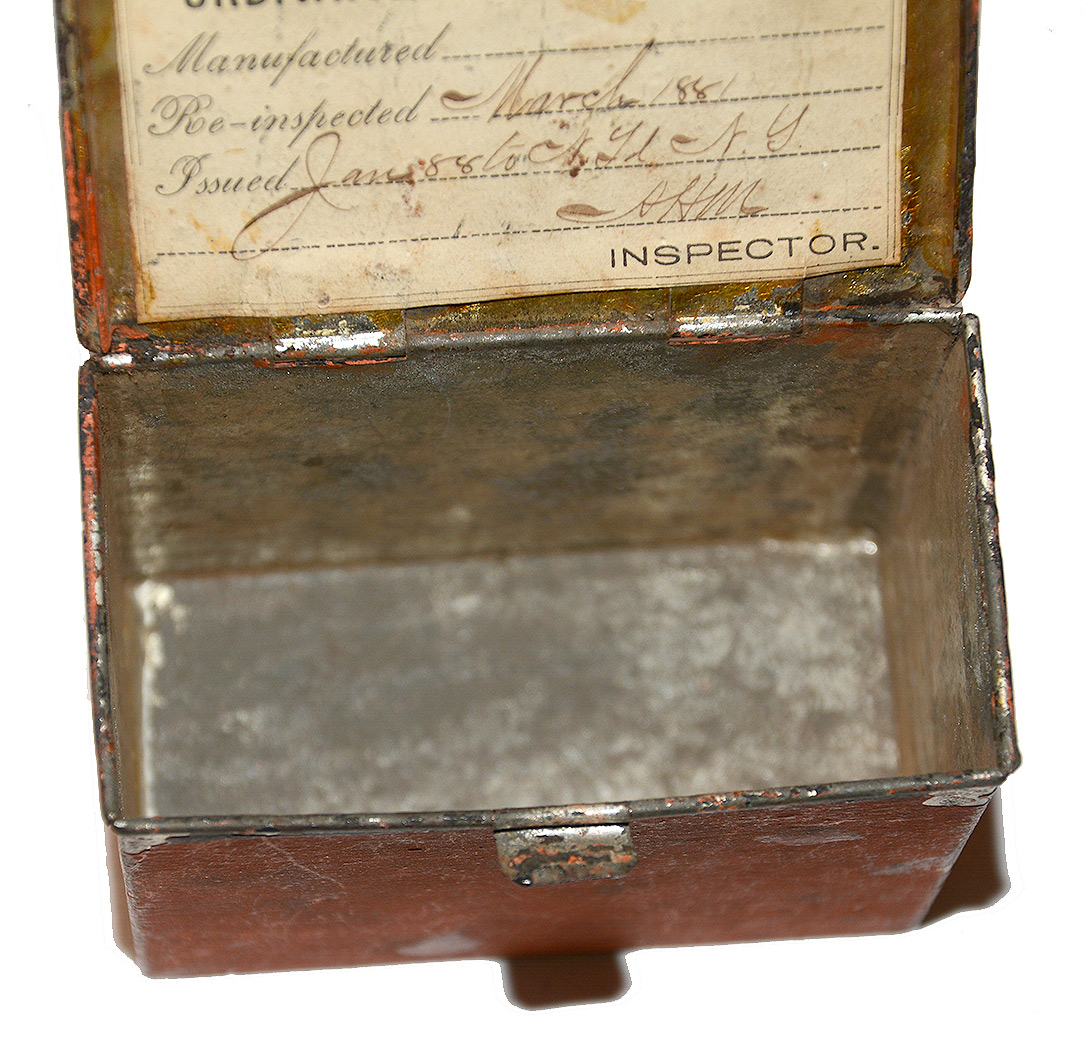 Manufactured
Re-inspected March 1881
Issued Jan 88 to N. Yd. N. Y.
AHM
INSPECTOR.